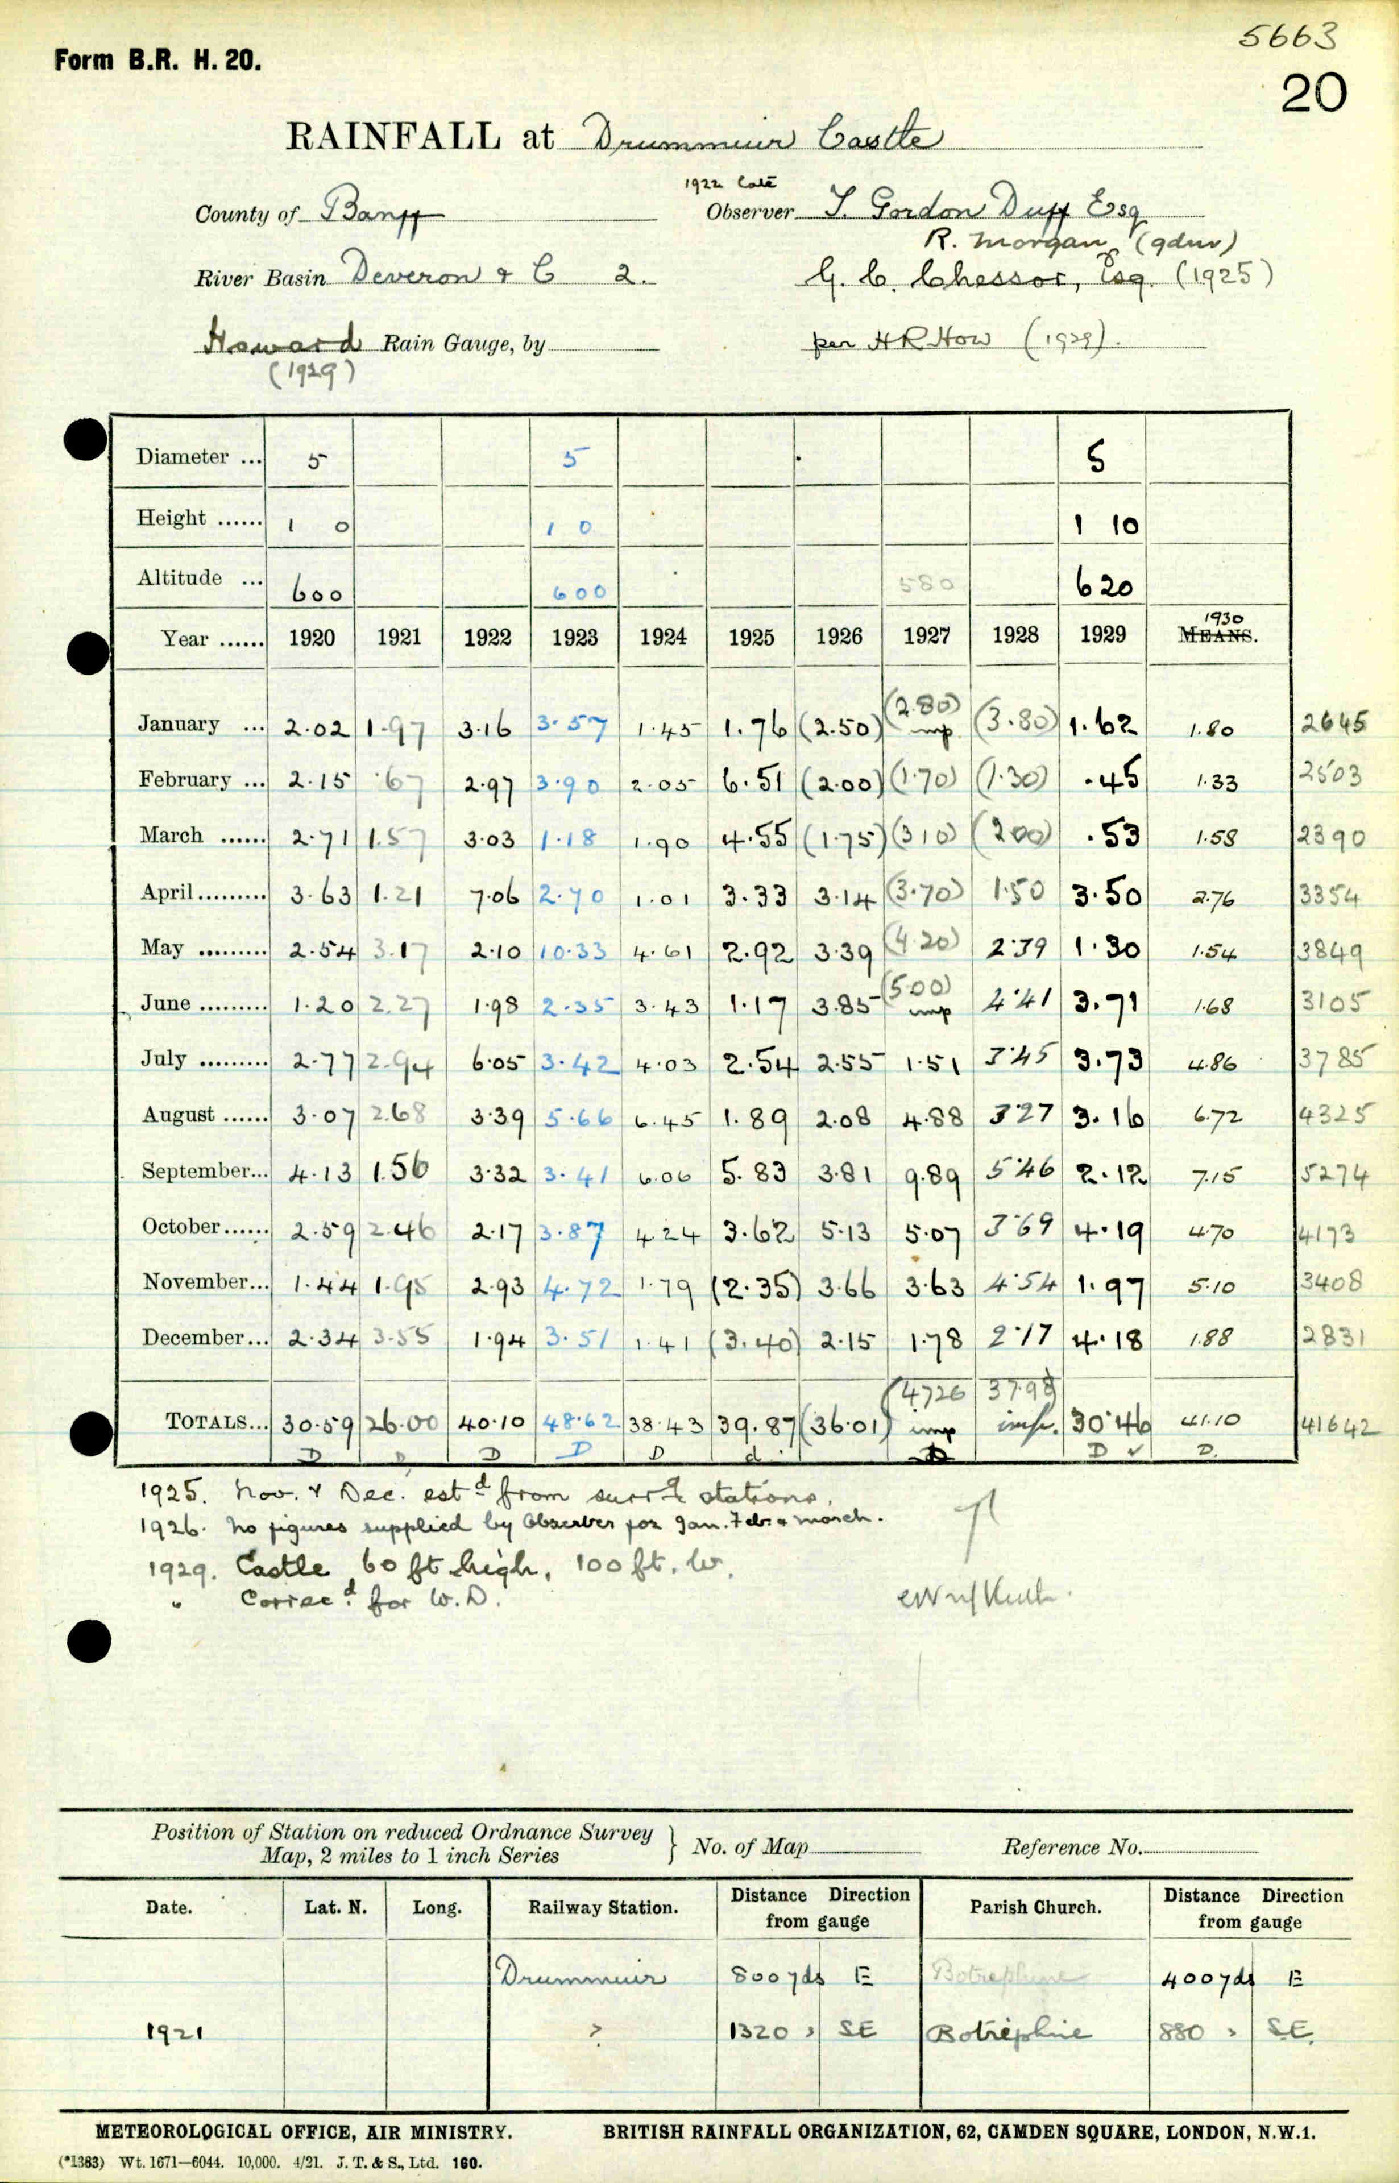 5663
Form B.R. H. 20.
20
RAINFALL at Drummuir Castle
1922 late
County of Banff Observer T. Gordon Duff Esq
R. Morgan (gdnr)
River Basin Deveron & C 2. G. C. Chessor, Esq. (1925)
Howard Rain Gauge, by per H R How (1929).
(1929)
Diameter ... 5 5 5
Height ...... 1 0 1 0 1 10
Altitude ... 600 600 580 620
1930
Year ...... 1920 1921 1922 1923 1924 1925 1926 1927 1928 1929 MEANS.
January ... 2.02 1.97 3.16 3.57 1.45 1.76 (2.50) (2.80) imp (3.80) 1.62 1.80 2645
February ... 2.15 .67 2.97 3.90 2.05 6.51 (2.00) (1.70) (1.30) .45 1.33 2503
March ...... 2.71 1.57 3.03 1.18 1.90 4.55 (1.75) (3 10) (2 00) .53 1.58 2390
April ......... 3.63 1.21 7.06 2.70 1.01 3.33 3.14 (3.70) 1.50 3.50 2.76 3354
May ......... 2.54 3.17 2.10 10.33 4.61 2.92 3.39 (4.20) 2.79 1.30 1.54 3849
June ......... 1.20 2.27 1.98 2.35 3.43 1.17 3.85 (5.00) imp 4.41 3.71 1.68 3105
July ......... 2.77 2.94 6.05 3.42 4.03 2.54 2.55 1.51 3.45 3.73 4.86 3785
August ...... 3.07 2.68 3.39 5.66 6.45 1.89 2.08 4.88 3.27 3.16 6.72 4325
September... 4.13 1.56 3.32 3.41 6.06 5.83 3.81 9.89 5.46 2.12 7.15 5274
October...... 2.59 2.46 2.17 3.87 4.24 3.62 5.13 5.07 3.69 4.19 4.70 4173
November... 1.44 1.95 2.93 4.72 1.79 (2.35) 3.66 3.63 4.54 1.97 5.10 3408
December... 2.34 3.55 1.94 3.51 1.41 (3.40) 2.15 1.78 2.17 4.18 1.88 2831
(4726 37.98)
TOTALS... 30.59 26.00 40.10 48.62 38.43 39.87 (36.01) imp imp. 30.46 41.10 41642
D D D D D d D D ✓ D.
1925. Nov. & Dec. estd from surrg stations.
1926. No figures supplied by Observer for Jan. Feb. & March.
1929. Castle 60 ft high, 100 ft. W.
" Correcd. for W.D.
Position of Station on reduced Ordnance Survey
Map, 2 miles to 1 inch Series } No. of Map Reference No.
Date. Lat. N. Long. Railway Station. Distance Direction from gauge Parish Church. Distance Direction from gauge
Drummuir 800 yds E Botrephine 400 yds E
1921 " 1320 " SE Botriphine 880 " S.E.
METEOROLOGICAL OFFICE, AIR MINISTRY. BRITISH RAINFALL ORGANIZATION, 62, CAMDEN SQUARE, LONDON, N.W.1.
(*1383) Wt. 1671—6044. 10,000. 4/21. J. T. & S., Ltd. 160.